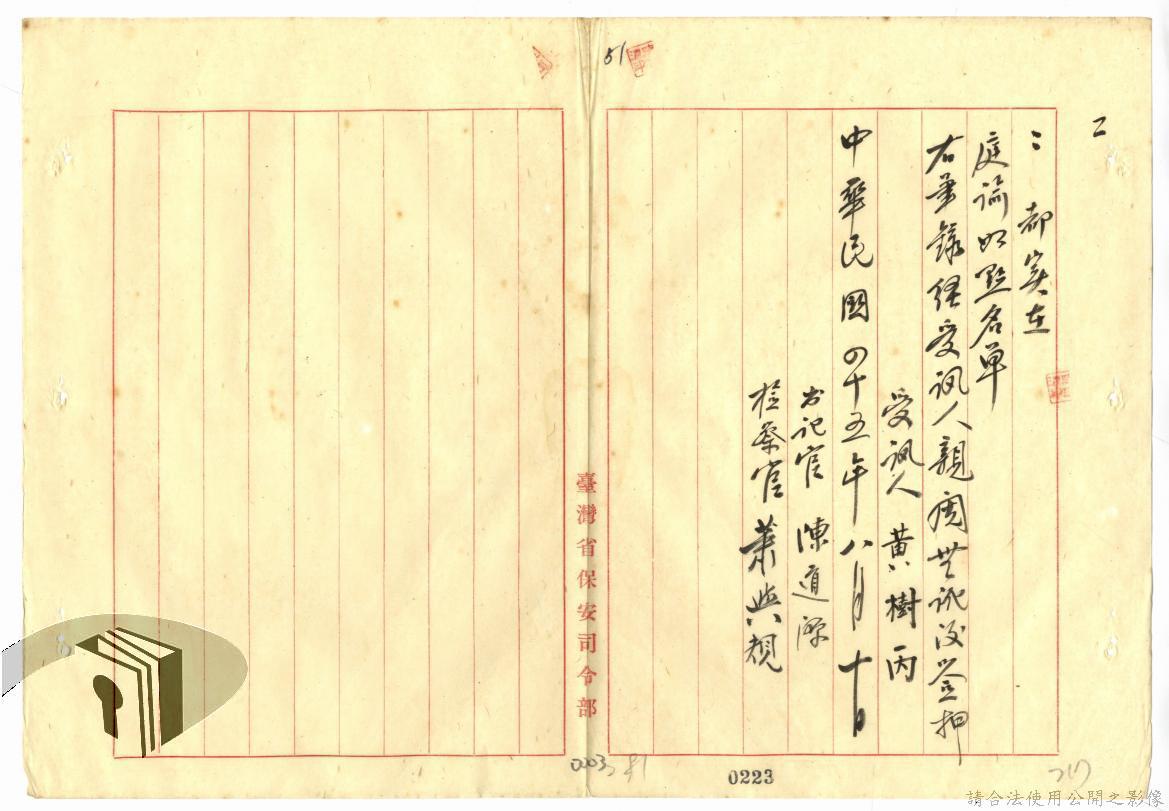 二
: 都实在
庭諭如點名單
右筆錄經受訊人親閱無訛後簽押
受訊人 黃樹丙
中華民國四十五年八月十日
书记官 陳道
检察官 蕭與規
臺灣省保安司令部
51
0223
217
請合法使用公開之影像